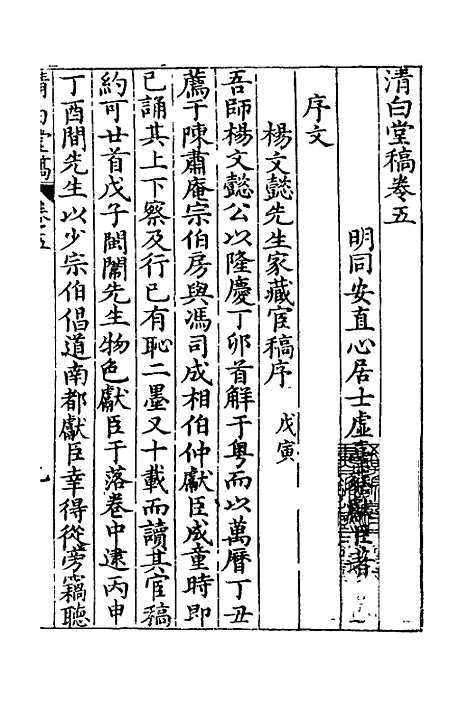 清白堂稿卷五
明同安直心居士虛臺蔡獻臣著
序文
楊文懿先生家藏宦稿序 戊寅
吾師楊文懿公以隆慶丁卯首解于粵而以萬曆丁丑
薦于陳肅庵宗伯房與馮司成相伯仲獻臣成童時即
已誦其上下察及行己有恥二墨又十載而讀其宦稿
約可廿首戊子閩闈先生物色獻臣于落卷中逮丙申
丁酉間先生以少宗伯倡道南都獻臣幸得從旁竊聽
清白堂稿 卷五